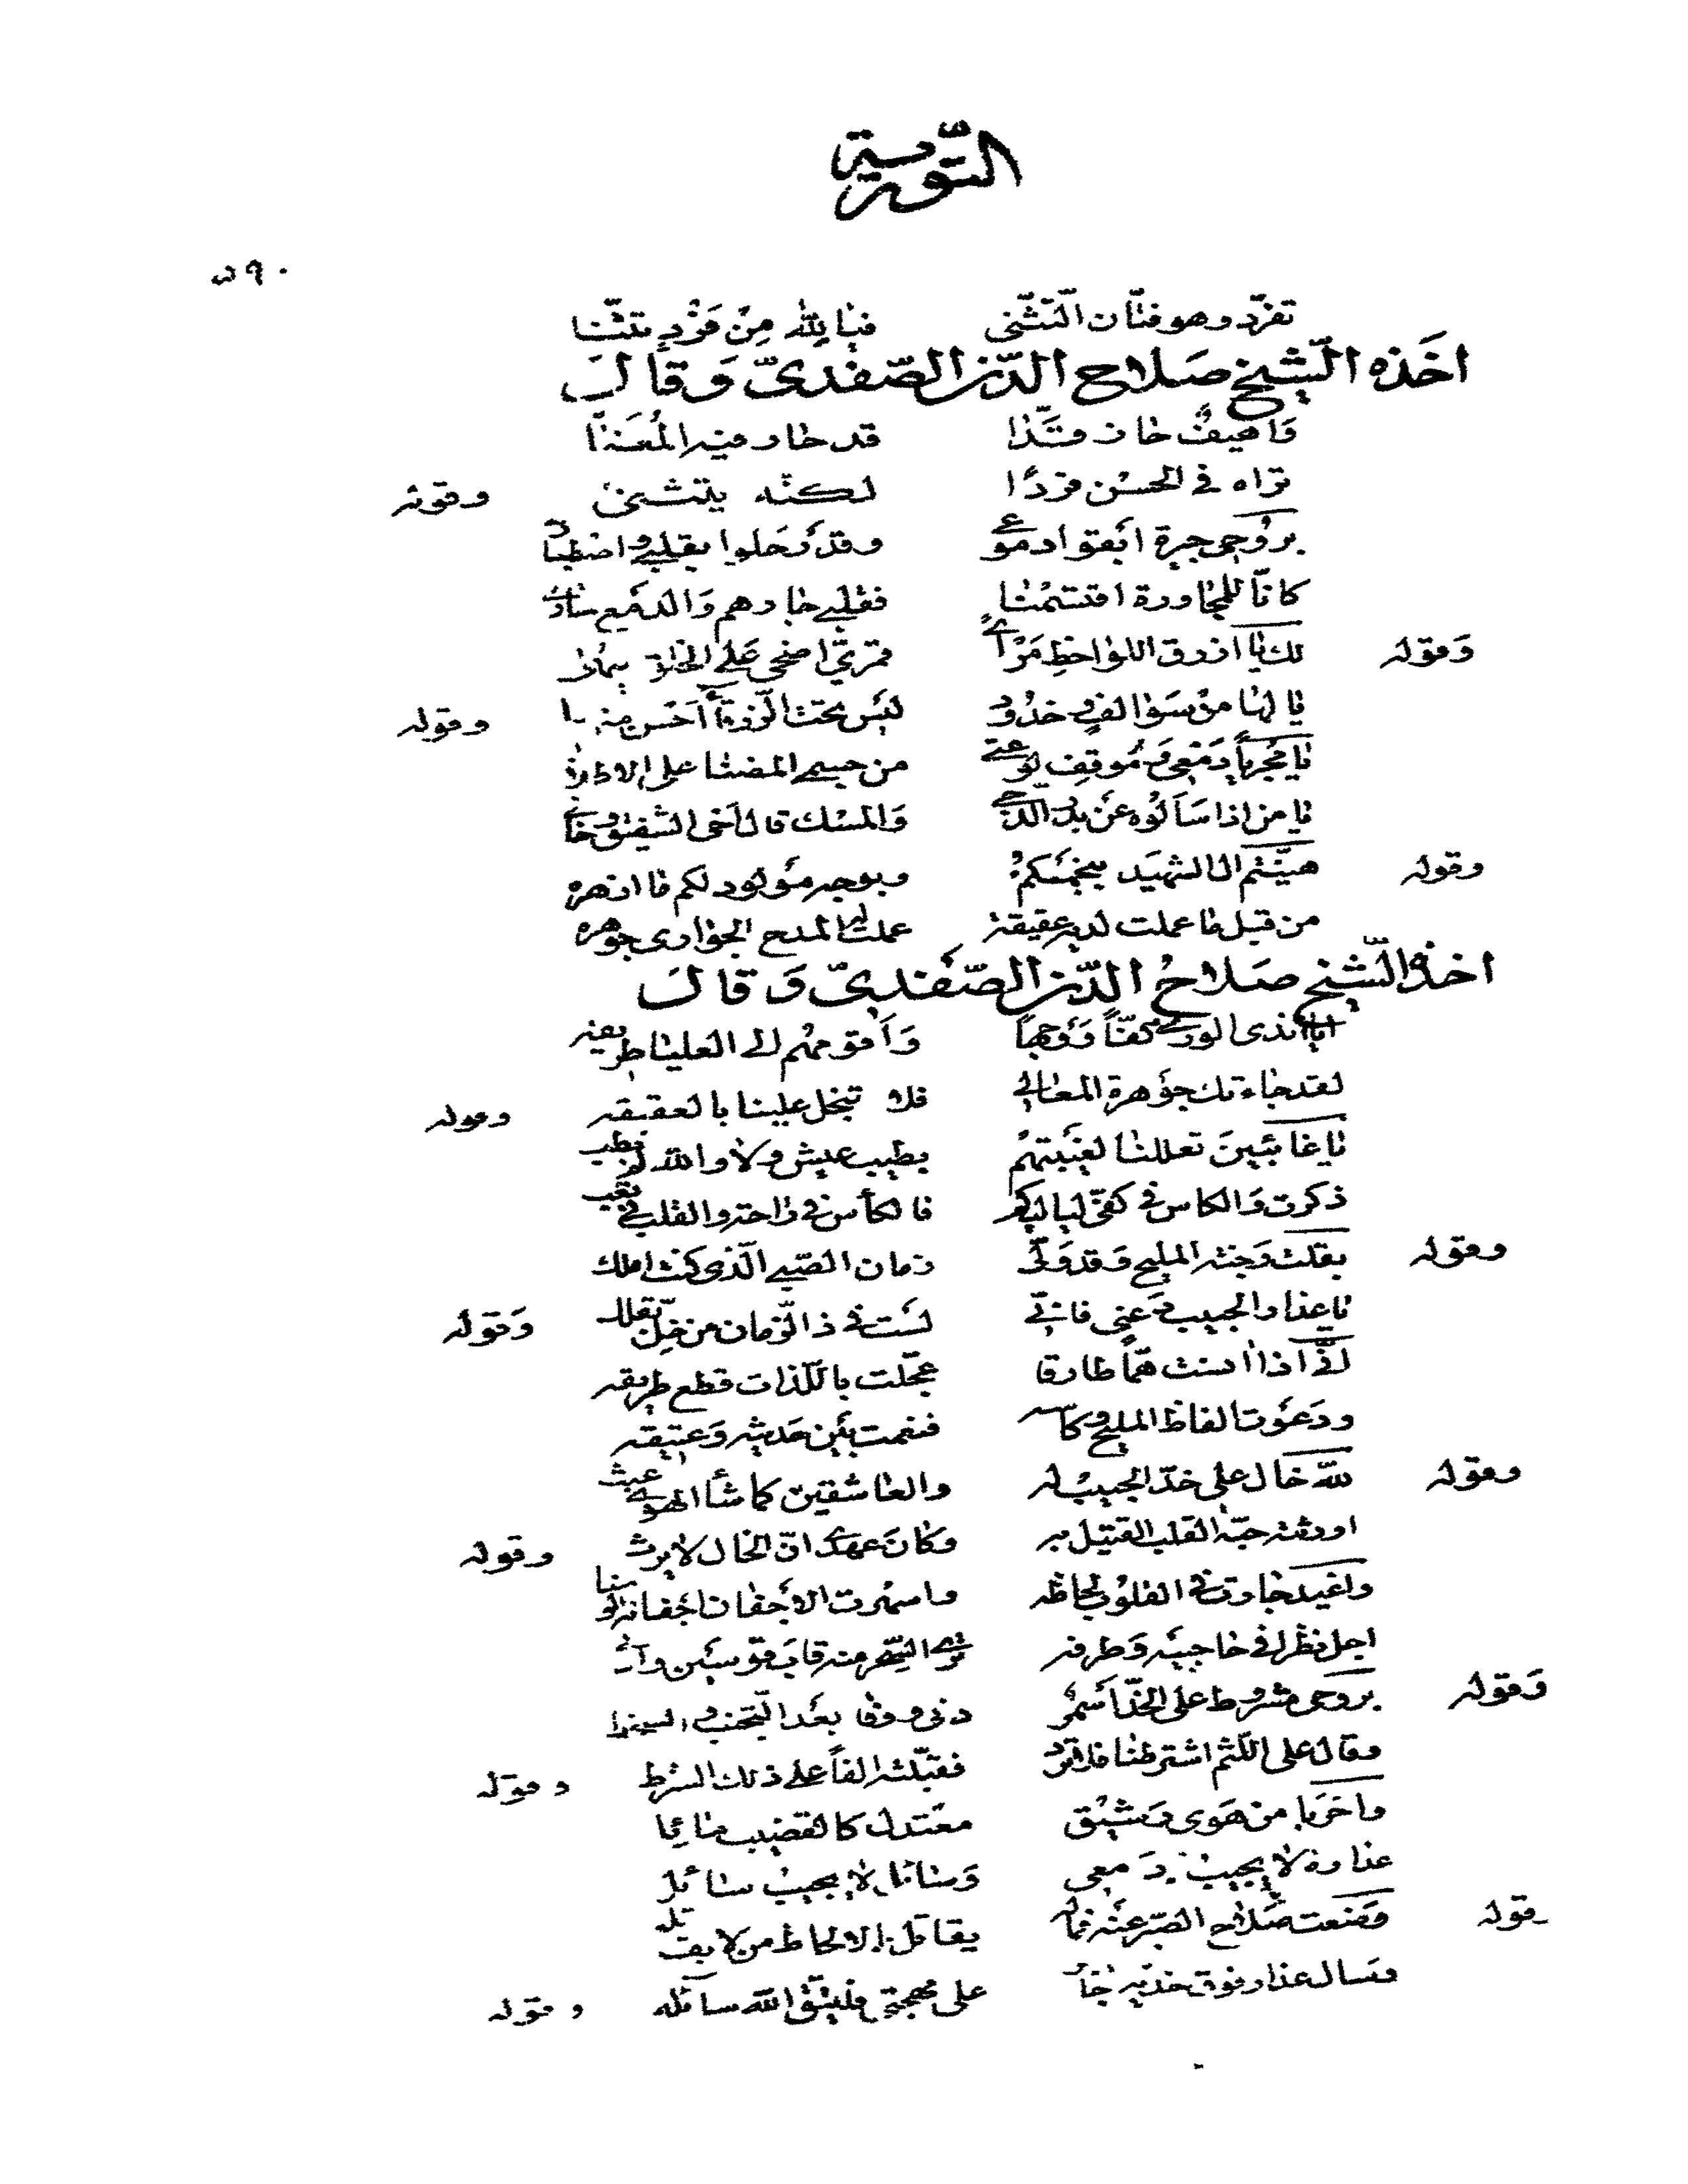 التورية
٥٩٠
تفرّد وهو فتّان التّثنّى فيا لله مِنْ فَرْدٍ تثنّا
اخَذه الشّيخ صَلاح الدّين الصّفدىّ وَقال
وَاهيفٌ حاز قدّا قد حار فيه المُعَنّا
تراه فى الحسْن فردًا لكنّه يتثنى وقوله
بروْحى جيرة ابقوا دموعى وقد رَحلوا بقلبى واصطبارى
كانّا للمجاورة اقتسمْنا فقلبى جارهم وَالدمع جارى
وَقوله لك يا ازرق اللواحظ مَرْأى قمرىّ اضحى عَلى الخلق
يا لها منْ سَوالفٍ وخدُود ليْس تحت الزرقاء احَسن منها وقوله
يا مُجريًا دَمْعى وَموقِف لوعتى من جسمى المضنا على الاطلال
يا من اذا سَألوْه عَن بدر الدّجى وَالمسْك قال اخى الشقيق وخالى
وقوله هنّيتم ال الشهيد بنجمكمُ وبوجه موْلود لكم ما ازهره
من قبل ما عملت لديه عقيقة عملت لها المدح الجوارى جوهره
اخذه الشّيخ صلاحُ الدّين الصّفدىّ وَقال
اياا ندى الورى كفّاً وَوجهاً وَاقومهُم الى العليا طريقه
لقد جاءتك جوْهرة المعالى فلا تبخل علينا بالعقيقه وقوله
يا غائبين تعللنا لغيْبتهمُ بطيب عيش ولا والله لم يطب
ذكرت وَالكاس فى كفّى لياليكم فالكأس فى راحة والقلب فى تعب
وقوله بقلت وَجنة المليح وَقد وَلّى زمان الصّبى الّذى كنت املك
يا عذار الحبيب دَعنى فانّى لسْت فى ذا الزّمان من خلّ بقلك وَقوله
انّى اذا انست همّا طارقا عجّلت باللذات قطع طريقه
ودَعوْت الفاظ المليح وكاسه فنعمت بيْن حَديثه وَعتيقه
وقوله لله خال على خدّ الحبيب له والعاشقين كما شأ الهوى عبث
اورثته حبّة القلب القتيل به وكانَ عهدى انّ الخال لا يرث وقوله
واغيد جارت فى القلوب لحاظه واسهرت الاجفان اجفانه الوسنا
اجل نظرًا فى حاجبيْه وَطرفه ترى السّحر منه قاب قوْسيْن
وَقوله بروحى مشروط على الخدّ اسمرُ دنى ووفى بعْد التّجنب
وقال على اللّثم اشترطنا فلا تزد فقبّلته الفاً على ذلك الشرط وقوله
واحَربا من هَوى رَشيْق معتدل كالقضيب مائل
عذاره لا يجيب دَمعى وَسائل لا يجيب سائل
وقوله وَضيّعت صَلاح الصّبر عنْه يقاتل بالالحاظ من لا يقاتله
وسال عذار فوق خدّيه على مهجتى فليتّق الله سائله وقوله